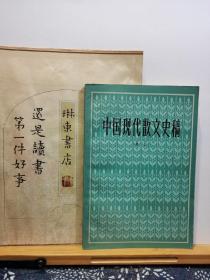 琳東書店
還是讀書
第一件好事
中国现代散文史稿